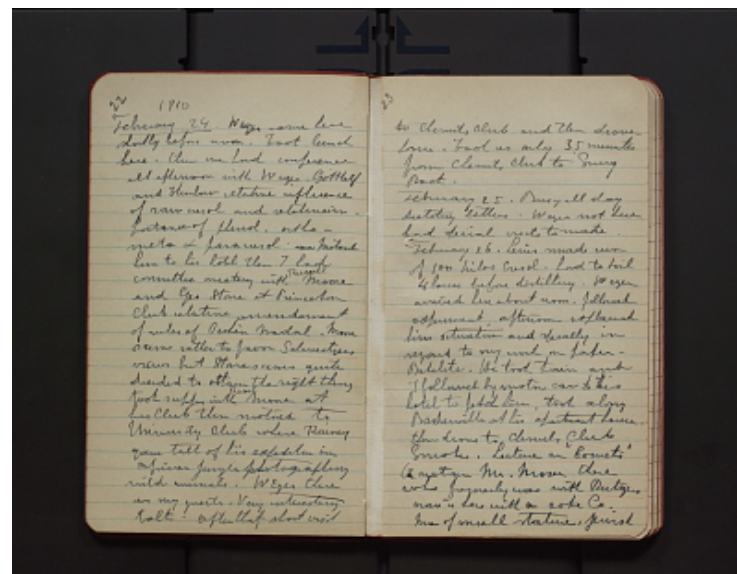 22
1910
February 24. Weger came here
shortly before noon. Took lunch
here. Then we had conference
all afternoon with Weger, Gottlieb
and relative influence
of raw cresol and
of phenol, ortho-
meta & paracresol.
him to his hotel then 7
committee meeting with Russell Moore
and Geo Stone at Princeton
Club relative amendment
of rules of Perkin Medal. Moore
seems rather to favor
views but Stone seems quite
decided to the right thing
Took supper with Moore at
his Club then motored to
University Club where Rainey
gave talk of his expedition in
African jungle photographing
wild animals. Weger there
as my guest. Very interesting
talk. After that short visit
23
to Chemists Club and then drove
home. Took us only 35 minutes
from Chemists Club to Snug
Rock.
February 25. Busy all day
dictating letters. Weger not here
had social visits to make.
February 26. made run
of 100 kilos Cresol. had to boil
4 hours before distilling. Weger
arrived here about noon. followed
experiment, afternoon explained
him situation and specially in
regard to my work on paper-
Bakelite. He took train and
I followed by motor car to his
hotel to fetch him, took along
Baskerville at his apartment house.
then drove to Chemists Club
Smoker. Lecture on "Comets"
Mr. there
who formerly was with
now is here with a coke Co.
man of small stature, Jewish